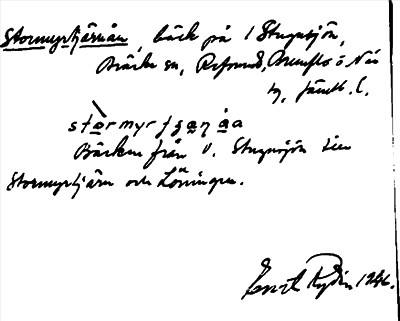 Stormyrtjärnån, bäck på / Stugusjön,
Bräcke sn, Refsund, Brunflo o. Näs
tg, Jämtl. l.
stòrmyrʃanåa
Bäcken från V. Stugusjön till
Stormyrtjärn och Löningen.
Ernst Rydin 1946.